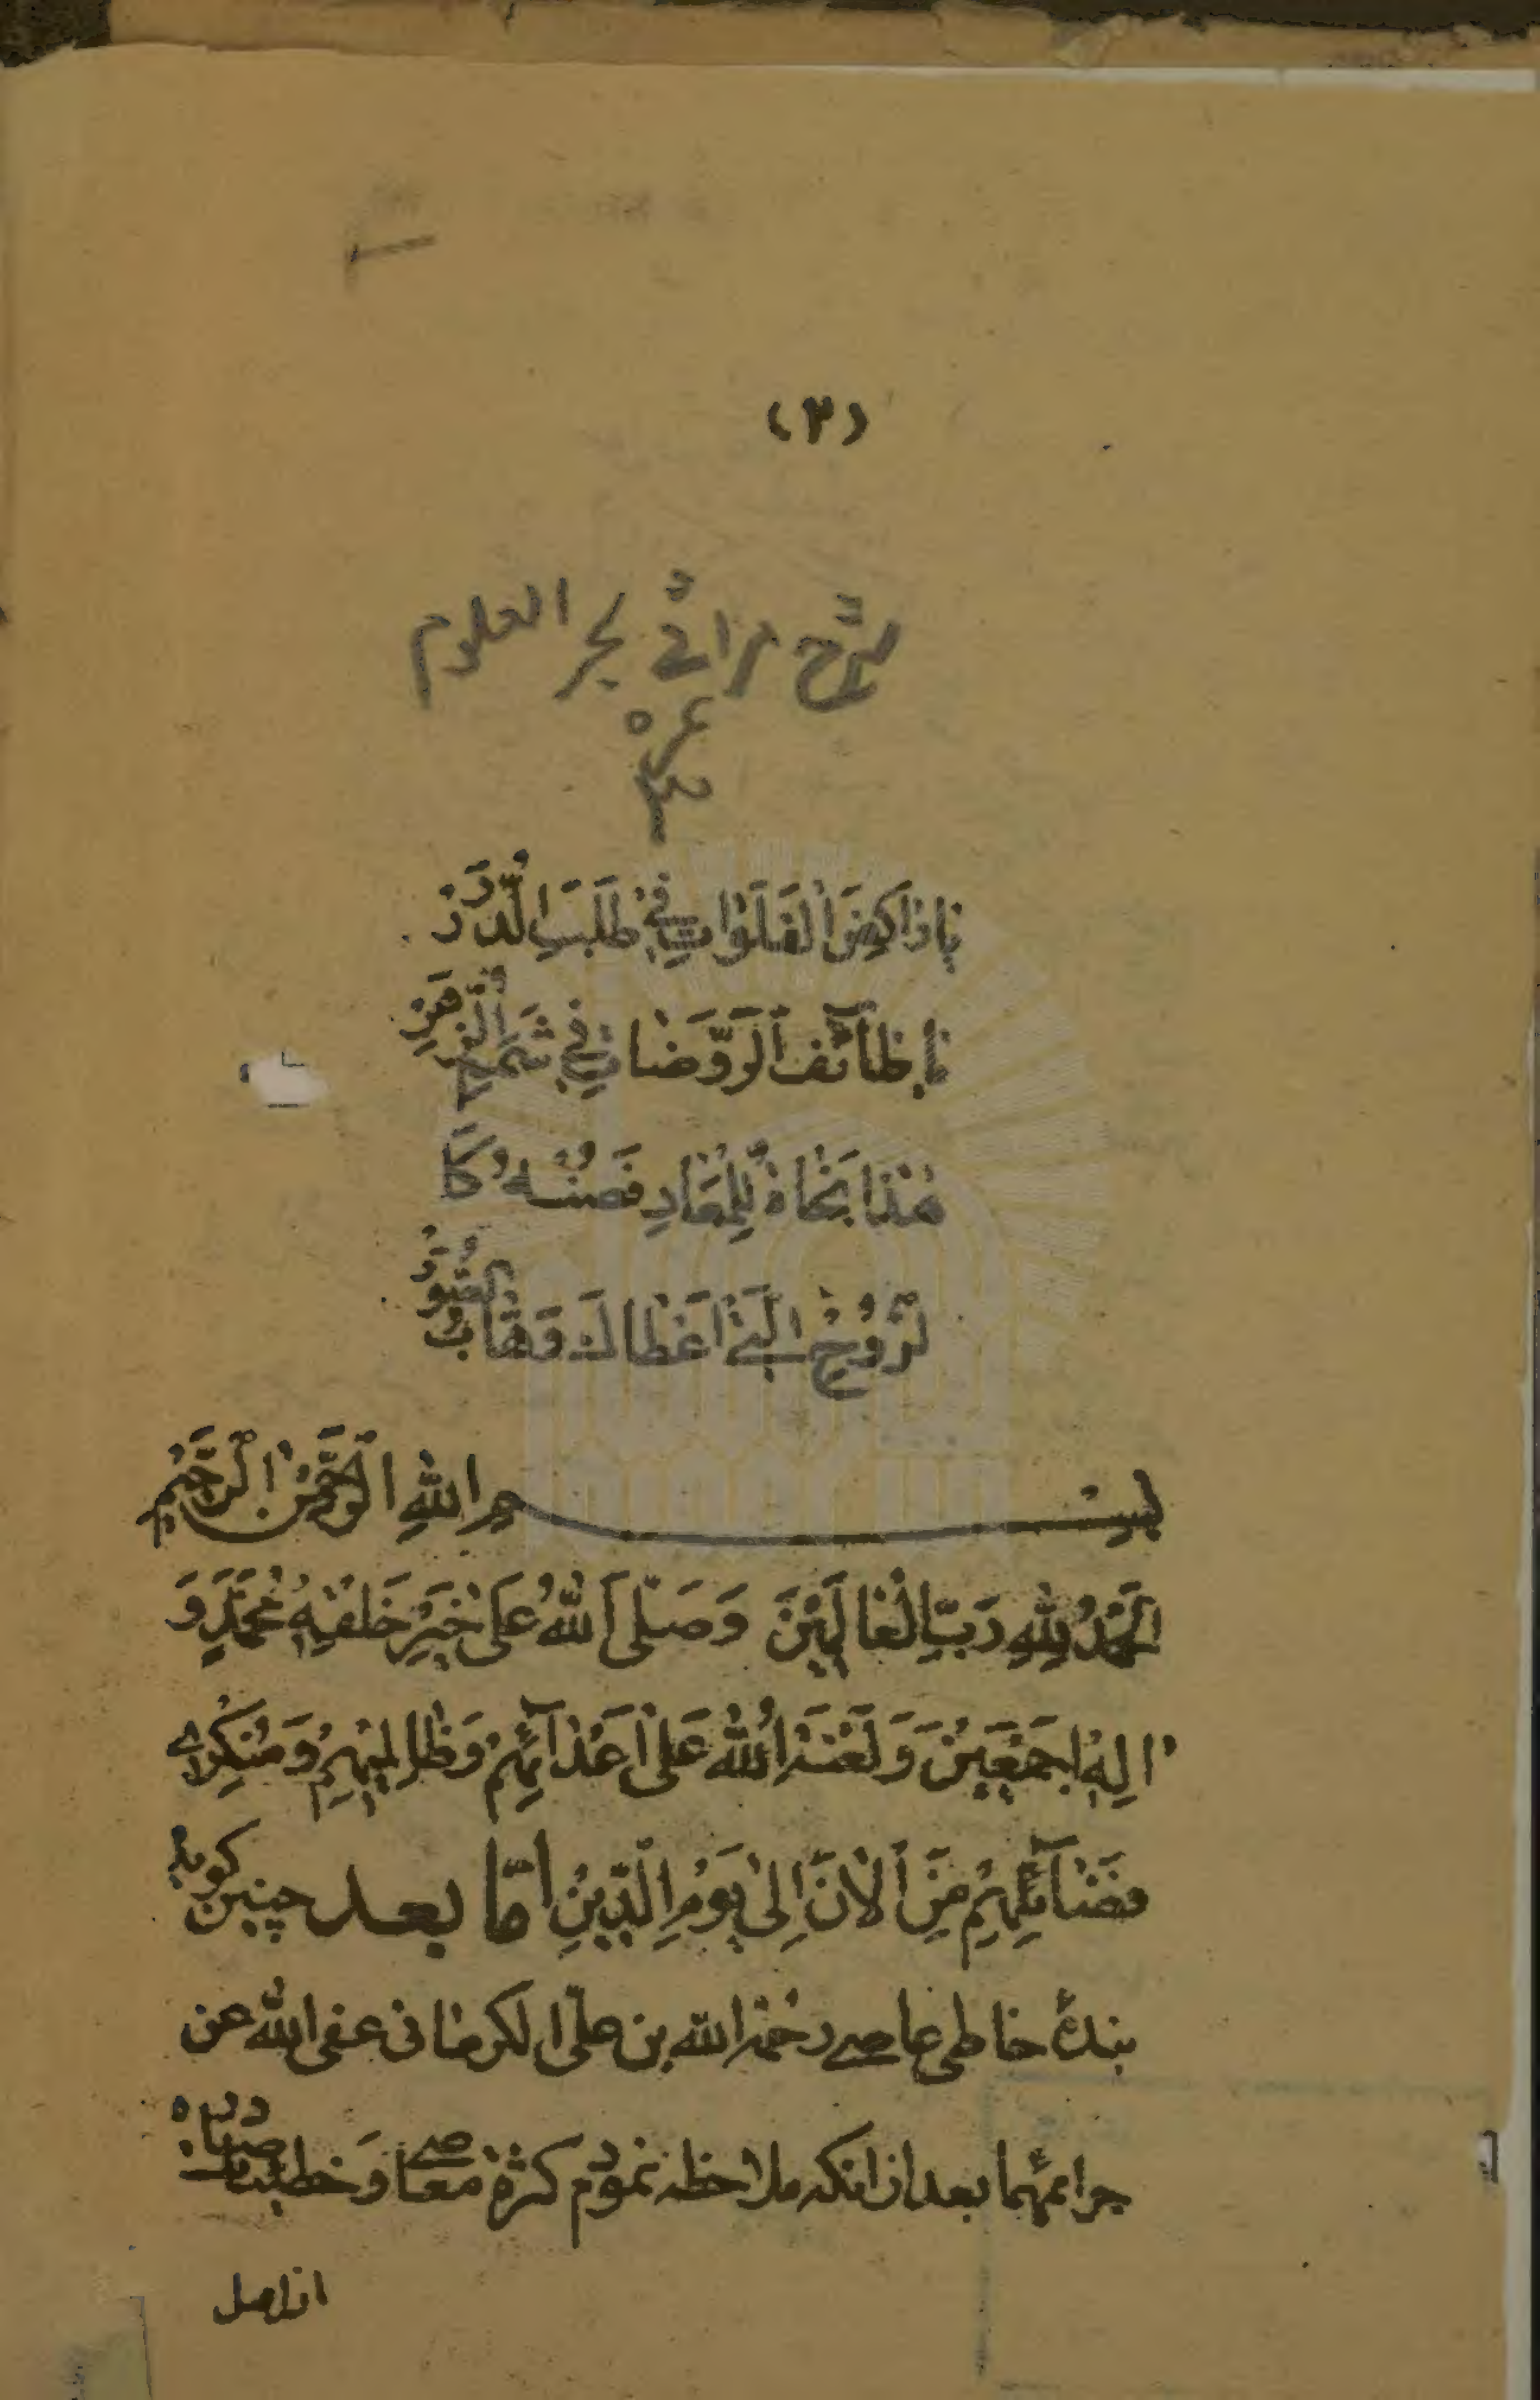 (۳)
شرح مراثی بحر العلوم
یا راکِضَ الْفَلَواتِ فی طَلَبِ الدُّرَرْ
یا طآئِفَ الرَّوَّضاتِ فی
هٰذا نَجاةٌ لِلْمَعادِ فَصُنْهُ کَا
لرُّوحِ الَّتی اَعْطاکَ وَهّابُ
بِسْمِ اللهِ الرَّحْمٰنِ الرَّحیمِ
اَلْحَمْدُ لِلّهِ رَبِّ الْعالَمینَ وَصَلَّی اللهُ عَلی خَیْرِ خَلْقِهِ مُحَمَّدٍ وَ
الِهِ اَجْمَعینَ وَلَعْنَةُ اللهِ عَلی اَعْدآئِهِمْ وَظالِمیهِمْ وَمُنْکِری
فَضآئِلِهِمْ مِنَ الْانَ اِلی یَوْمِ الدّینِ امّا بعد چنین کوید
بندهٔ خاطی عاصی رحمة الله بن علی الکرمانی عفی الله عن
جرائمهما بعد از انکه ملاحظه نمودم کثرة معاصی و خطیئات
از اهل